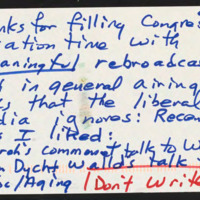 nks for filling Congres
ation time with
aningful rebroadcas
in general airing
s that the liberal
dia ignores: Recen
s I liked:
rah's comment talk to W
Dycht Walds talk
sc/Aging Don't Write